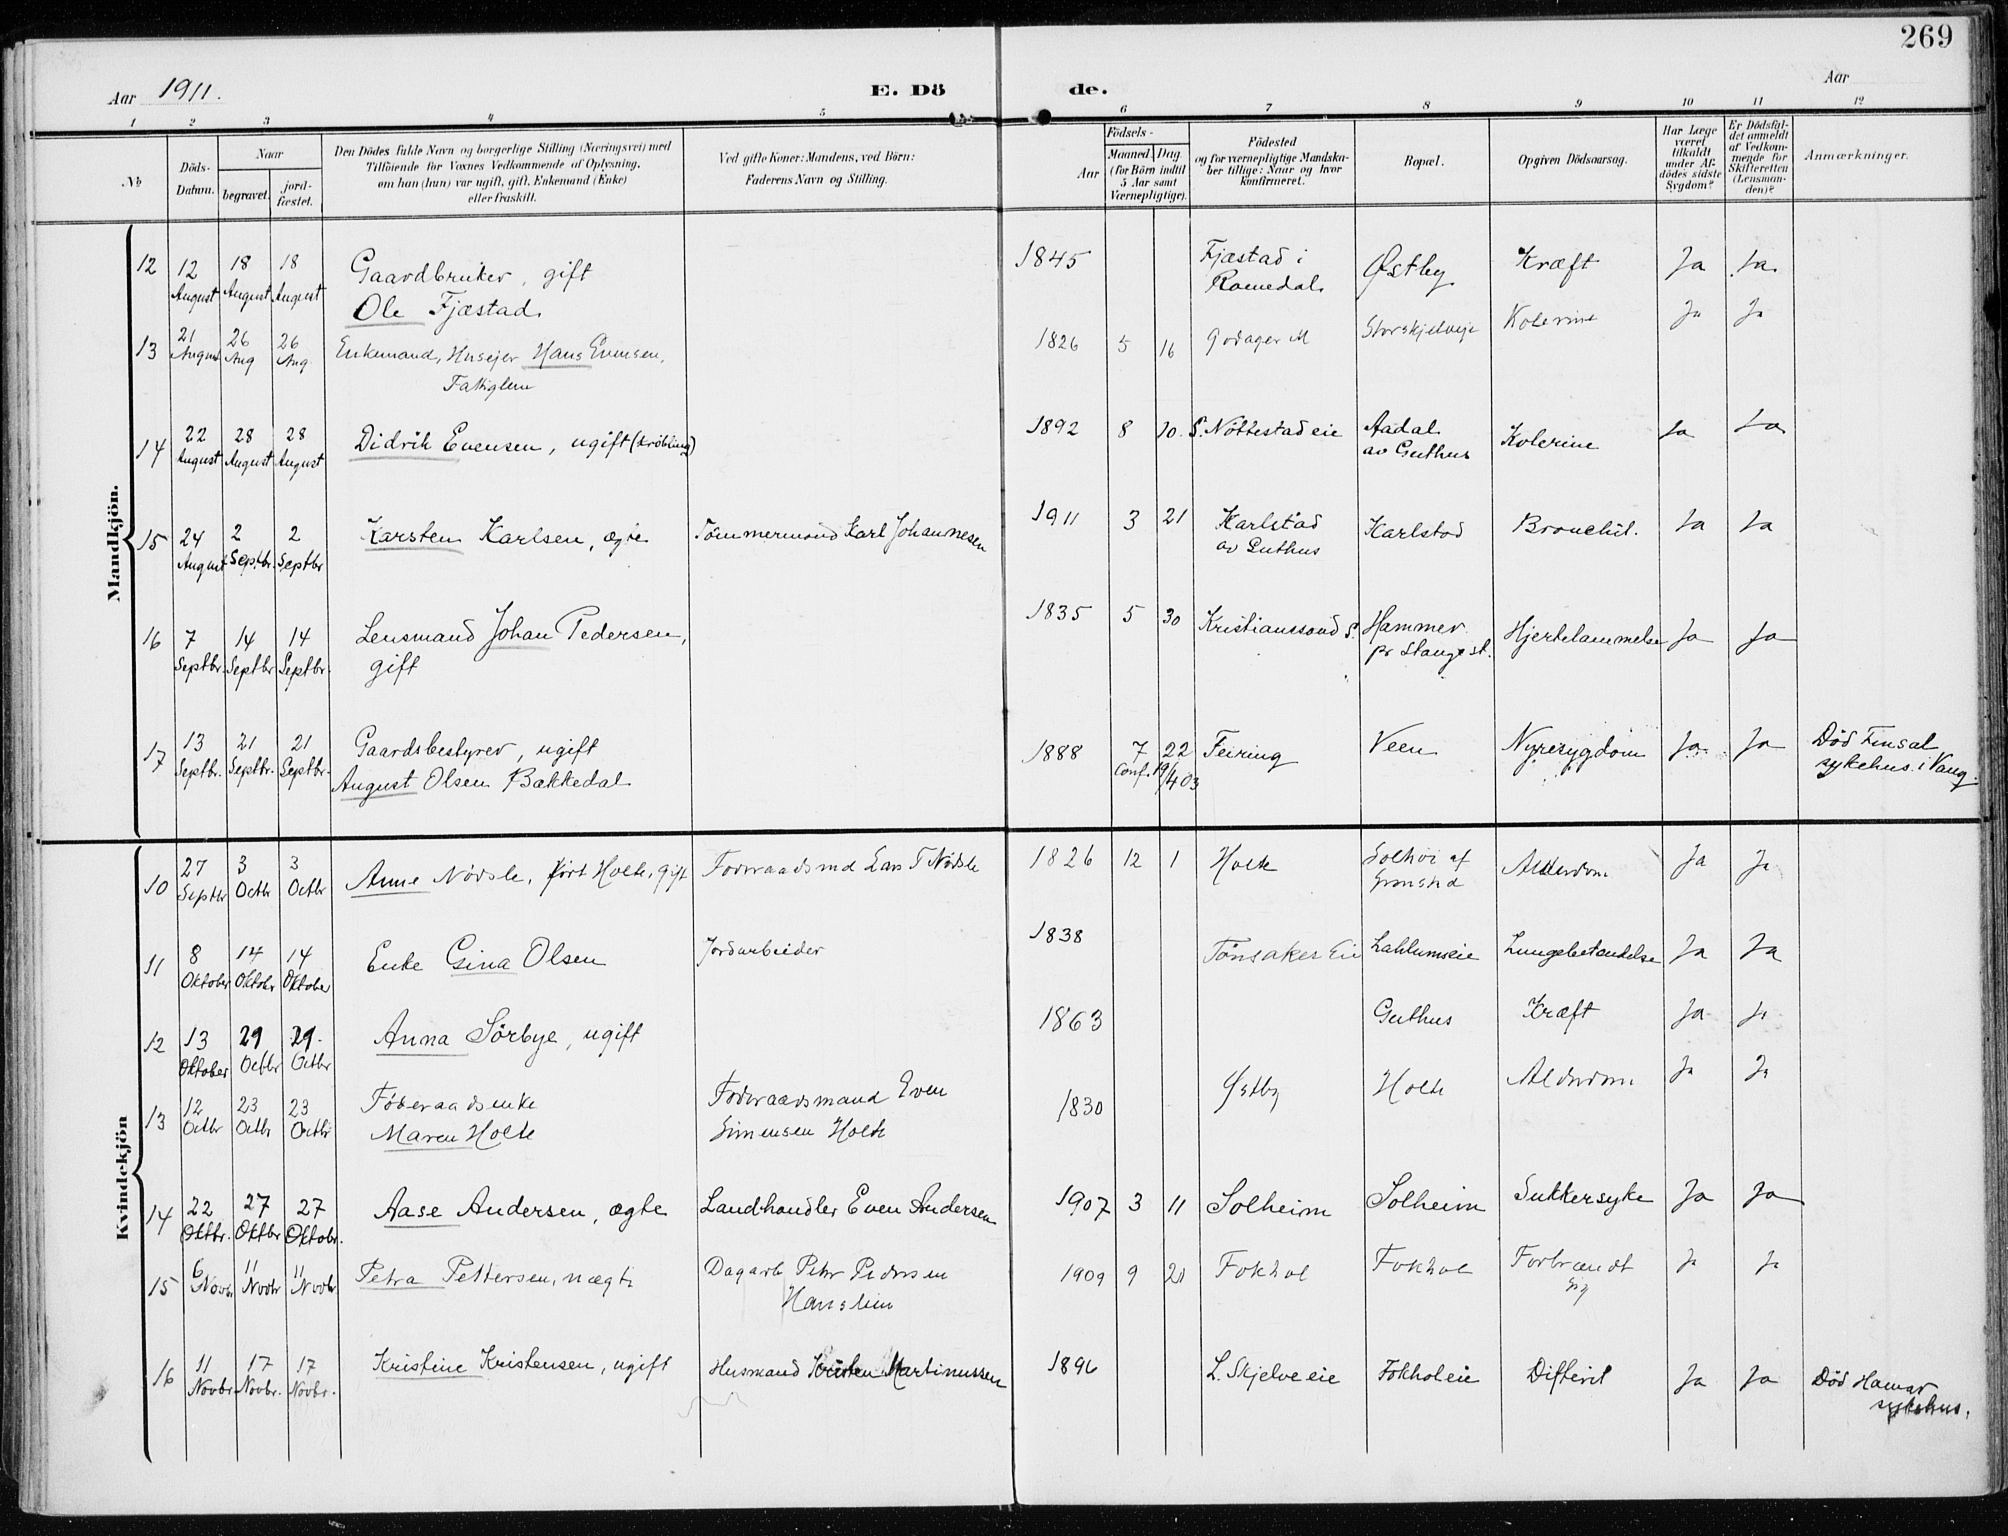 269
Aar 1911.
E. Dö de.
Aar
1 2 3 4 5 6 7 8 9 10 11 12
No
Döds-Datum.
Naar
begravet.
jord-fæstet.
Den Dödes fulde Navn og borgerlige Stilling (Næringsvei) med
Tilföiende for Voxnes Vedkommende af Oplysning,
om han (hun) var ugift, gift, Enkemand (Enke)
eller fraskilt.
Ved gifte Koner: Mandens, ved Börn:
Faderens Navn og Stilling.
Födsels-
Aar
Maaned Dag
(for Börn indtil
5 Aar samt
Værnepligtige).
Födested
og for værnepligtige Mandska-
ber tillige: Naar og hvor
konfirmeret.
Bopæl.
Opgiven Dödsaarsag.
Har Læge
været
tilkaldt
under Af-
dödes sidste
Sygdom?
Er Dödsfal-
det anmeldt
af Vedkom-
mende for
Skifteretten
(Lensman-
den)?
Anmærkninger.
Mandkjön.
12 12 August 18 August 18 August Gaardbruker, gift Ole Fjæstad 1845 Fjæstad i Romedal Østby Kræft Ja Ja
13 21 August 26 Aug 26 Aug Enkemand, Husejer Hans Evensen, Fattiglem 1826 5 16 Godager M Storskjelveje Kolerine Ja Ja
14 22 August 28 August 28 August Didrik Evensen, ugift (Krøbling) 1892 8 10. S. Nöttestad eie Aadal av Guthus Kolerine Ja Ja
15 24 August 2 Septbr. 2 Septbr Karsten Karlsen, ægte Tömmermand Karl Johannesen 1911 3 21 Karlstad av Guthus Karlstad Bronchit. Ja Ja
16 7 Septbr. 14 Septbr 14 Septbr. Lensmand Johan Pedersen, gift 1835 5 30 Kristianssand S. Hammer pr Stange st. Hjertelammelse Ja Ja
17 13 Septbr. 21 Septbr. 21 Septbr. Gaardsbestyrer, ugift August Olsen Bækkedal 1888 7 22 Conf. 19/4 03 Feiring Veen Nyresygdom Ja Ja Död Finsal sykehus i Vang.
Kvindekjön
10 27 Septbr 3 Octbr 3 Octbr Anne Nordsle, født Holte, gift Foderaadsmd Lars T Nordsle 1826 12 1 Holte Solhøi af Alderdom Ja Ja
11 8 Oktober 14 Oktobr 14 Oktober Enke Gina Olsen Jordarbeider 1838 Tönsaker Eie Lahlumseie Lungebetændelse Ja Ja
12 13 Oktober 29 Octbr 29. Octbr Anna Sörbye, ugift 1863 Guthus Kræft Ja Ja
13 12 Octbr 23 Octbr 23 Octbr Föderaadsenke Maren Holte Foderaadsmand Even Simensen Holte 1830 Østby Holte Alderdom Ja Ja
14 22 Oktbr. 27 Oktbr 27 Oktobr. Aase Andersen, ægte Landhandler Even Andersen 1907 3 11 Solheim Solheim Sukkersyke Ja Ja
15 6 Novbr 11 Novbr 11 Novbr Petra Pettersen, uægte Dagarb Petr Pedersen 1909 9 20 Fokhol Fokhol Forbrændt sig Ja Ja
16 11 Novbr 17 Novbr. 17 Novbr. Kristine Kristensen, ugift Husmand Kristen Martinussen 1896 L. Skjelve eie Fokhol eie Difterit Ja Ja Död Hamar sykehus.